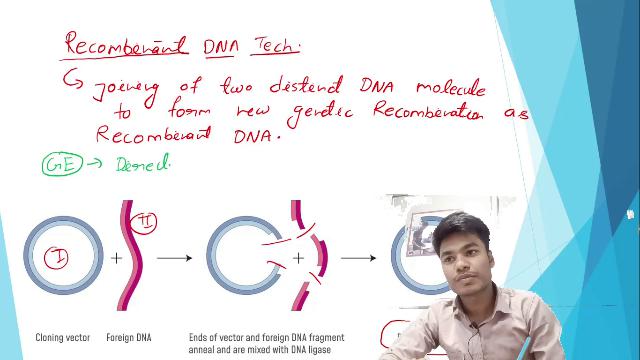 Recombenant DNA Tech.
↳ Joining of two distend DNA molecule
to form new genetic Recombenation as
Recombenant DNA.
GE → Dered
I
+
II
+
Cloning vector
Foreign DNA
Ends of vector and foreign DNA fragment
anneal and are mixed with DNA ligase